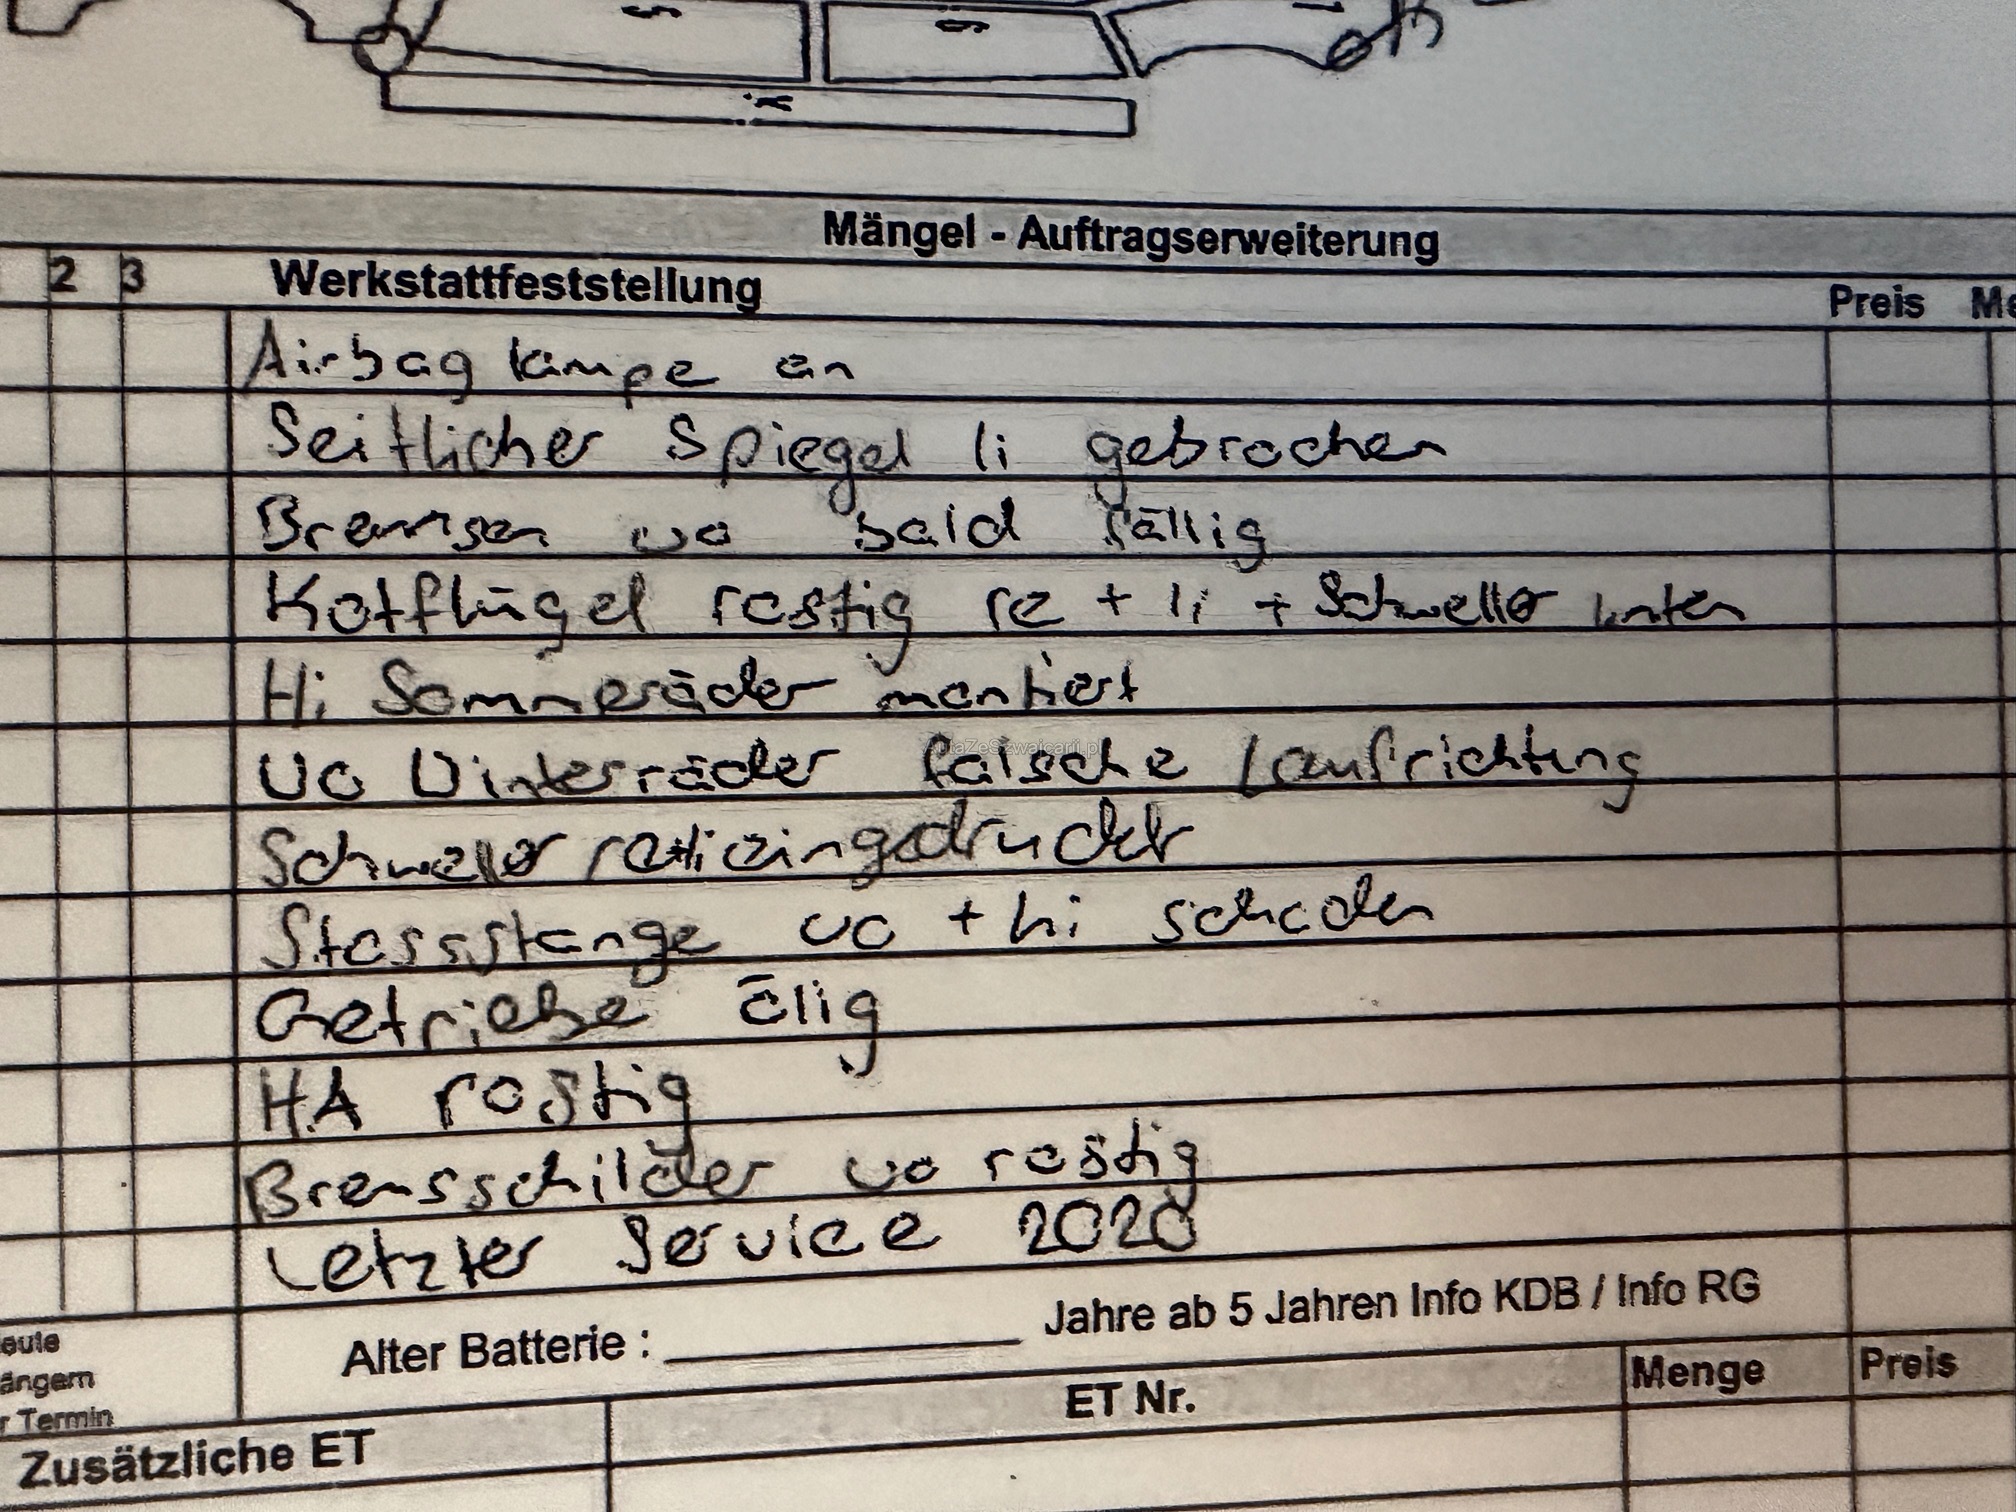 Mängel - Auftragserweiterung
2 3 Werkstattfeststellung Preis
Airbag lampe an
Seitlicher Spiegel li gebrochen
Bremsen vo bald fällig
Kotflügel rostig re + li + Schweller unten
Hi Sommeräder montiert
Vo Winterräder falsche Laufrichtung
Schweller re+li eingedruckt
Stossstange vo + hi schaden
Getriebe ölig
HA rostig
Bremsschilder vo rostig
Letzter Service 2020
Alter Batterie : Jahre ab 5 Jahren Info KDB / Info RG
r Termin
Zusätzliche ET ET Nr. Menge Preis
AutaZeSzwajcarii.pl